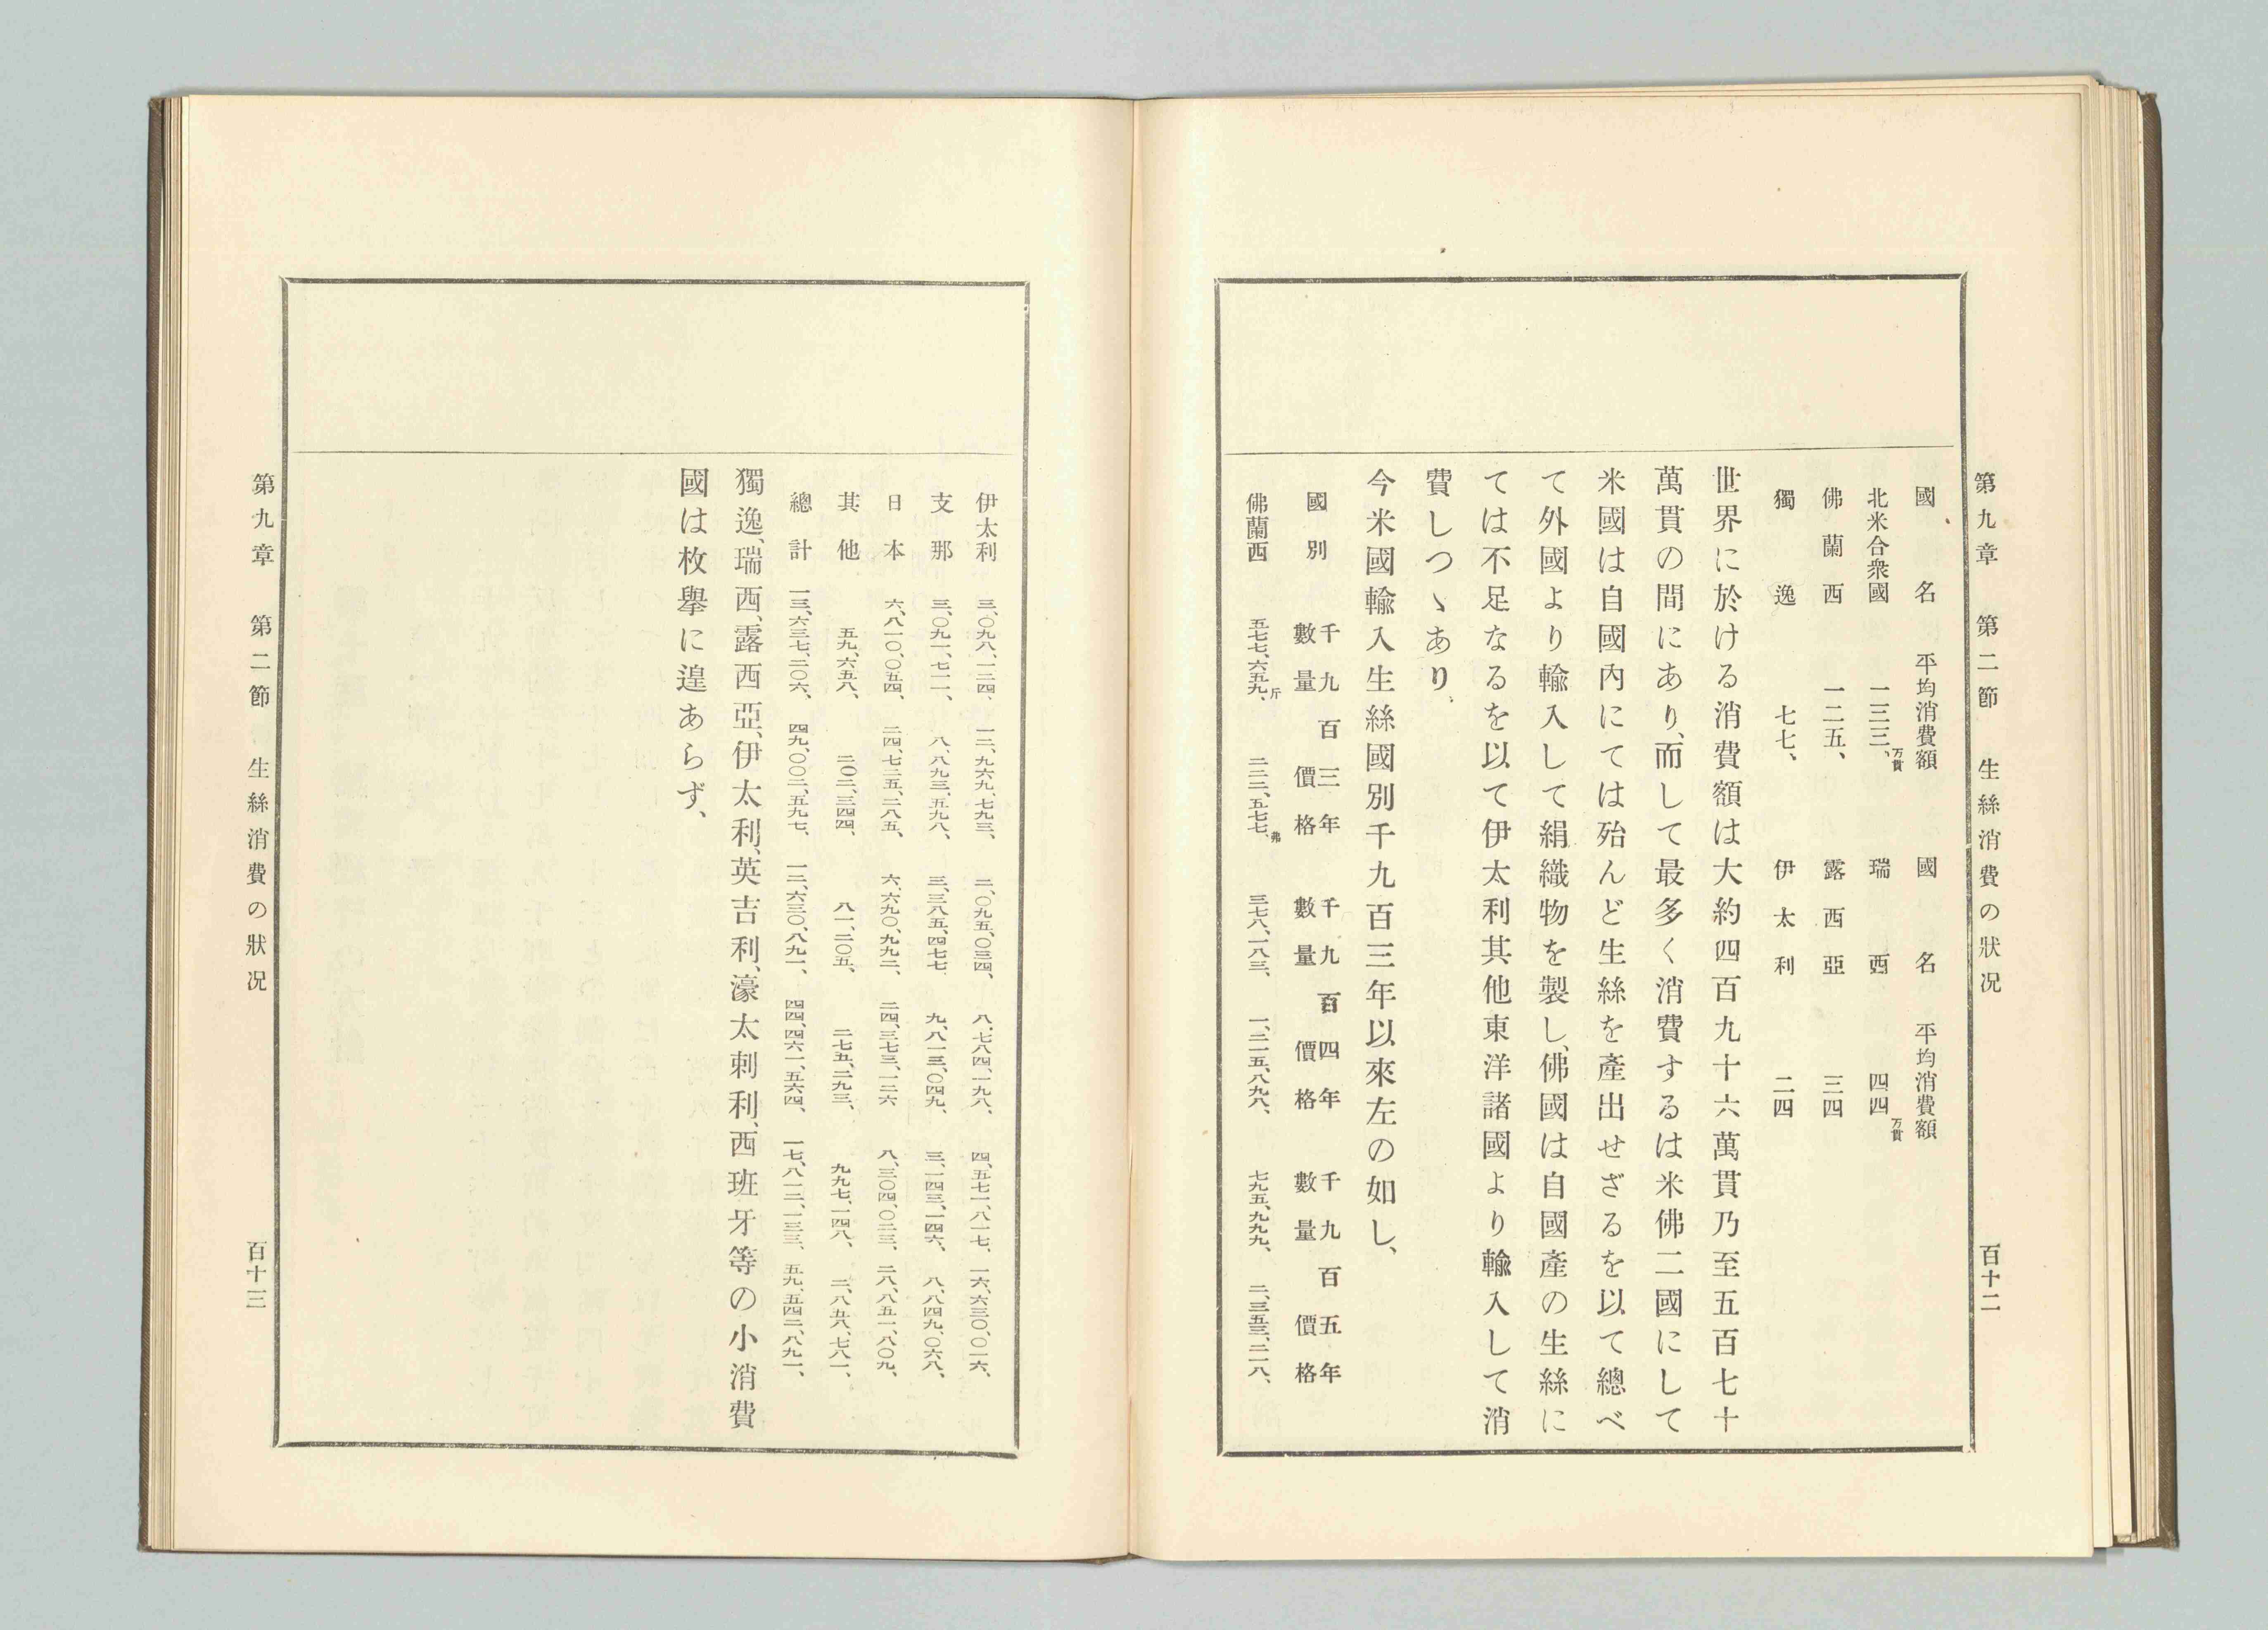 第九章　第二節　生絲消費の狀况　百十二
國名　平均消費額　國名　平均消費額
北米合衆國　一三三、万貫　瑞西　四四万貫
佛蘭西　一二五、　露西亞　三四
獨逸　七七、　伊太利　二四
世界に於ける消費額は大約四百九十六萬貫乃至五百七十
萬貫の間にあり、而して最多く消費するは米佛二國にして
米國は自國內にては殆んど生絲を產出せざるを以て總べ
て外國より輸入して絹織物を製し、佛國は自國產の生絲に
ては不足なるを以て伊太利其他東洋諸國より輸入して消
費しつゝあり、
今米國輸入生絲國別千九百三年以來左の如し、
國別　千九百三年　數量　價格　千九百四年　數量　價格　千九百五年　數量　價格
佛蘭西　五七七、六五九、斤　二二二、五七七、弗　三七八、一八三、　一、二一五、八九六、　七九五、九九九、　二、三五三、二一八、
伊太利　三、〇九八、一二四、　一二、九六九、七九三、　二、〇九五、〇三四、　八、七八四、一九八、　四、五七一、八一七、　一六、六三〇、〇一六、
支那　三、〇九一、七一一、　八、八九三、五九八、　三、三八五、四七七、　九、八一三、〇四九、　三、一四三、一四六、　八、八四九、〇六八、
日本　六、八一〇、〇五四、　二四、七二五、二八五、　六、六九〇、九九二、　二四、三七三、一二六　八、三〇四、〇二三、　二八、八五一、八〇九、
其他　五九、六五八、　二〇二、三四四、　八一、二〇五、　二七五、二九三、　九九七、一四八、　二、八五八、七八一、
總計　一三、六三七、二〇六、　四九、〇〇二、五九七、　一二、六三〇、八九一、　四四、四六一、五六四、　一七、八一二、一三三、　五九、五四二、八九一、
獨逸、瑞西、露西亞、伊太利、英吉利、濠太剌利、西班牙等の小消費
國は枚擧に遑あらず、
第九章　第二節　生絲消費の狀况　百十三